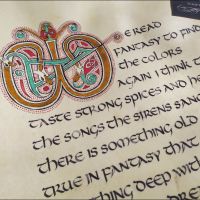 WE READ
FANTASY TO FIND
THE COLORS
AGAIN I THINK TO
TASTE STRONG SPICES AND
THE SONGS THE SIRENS SANG
THERE IS SOMETHING OLD
TRUE IN FANTASY THAT
THING DEEP WITH